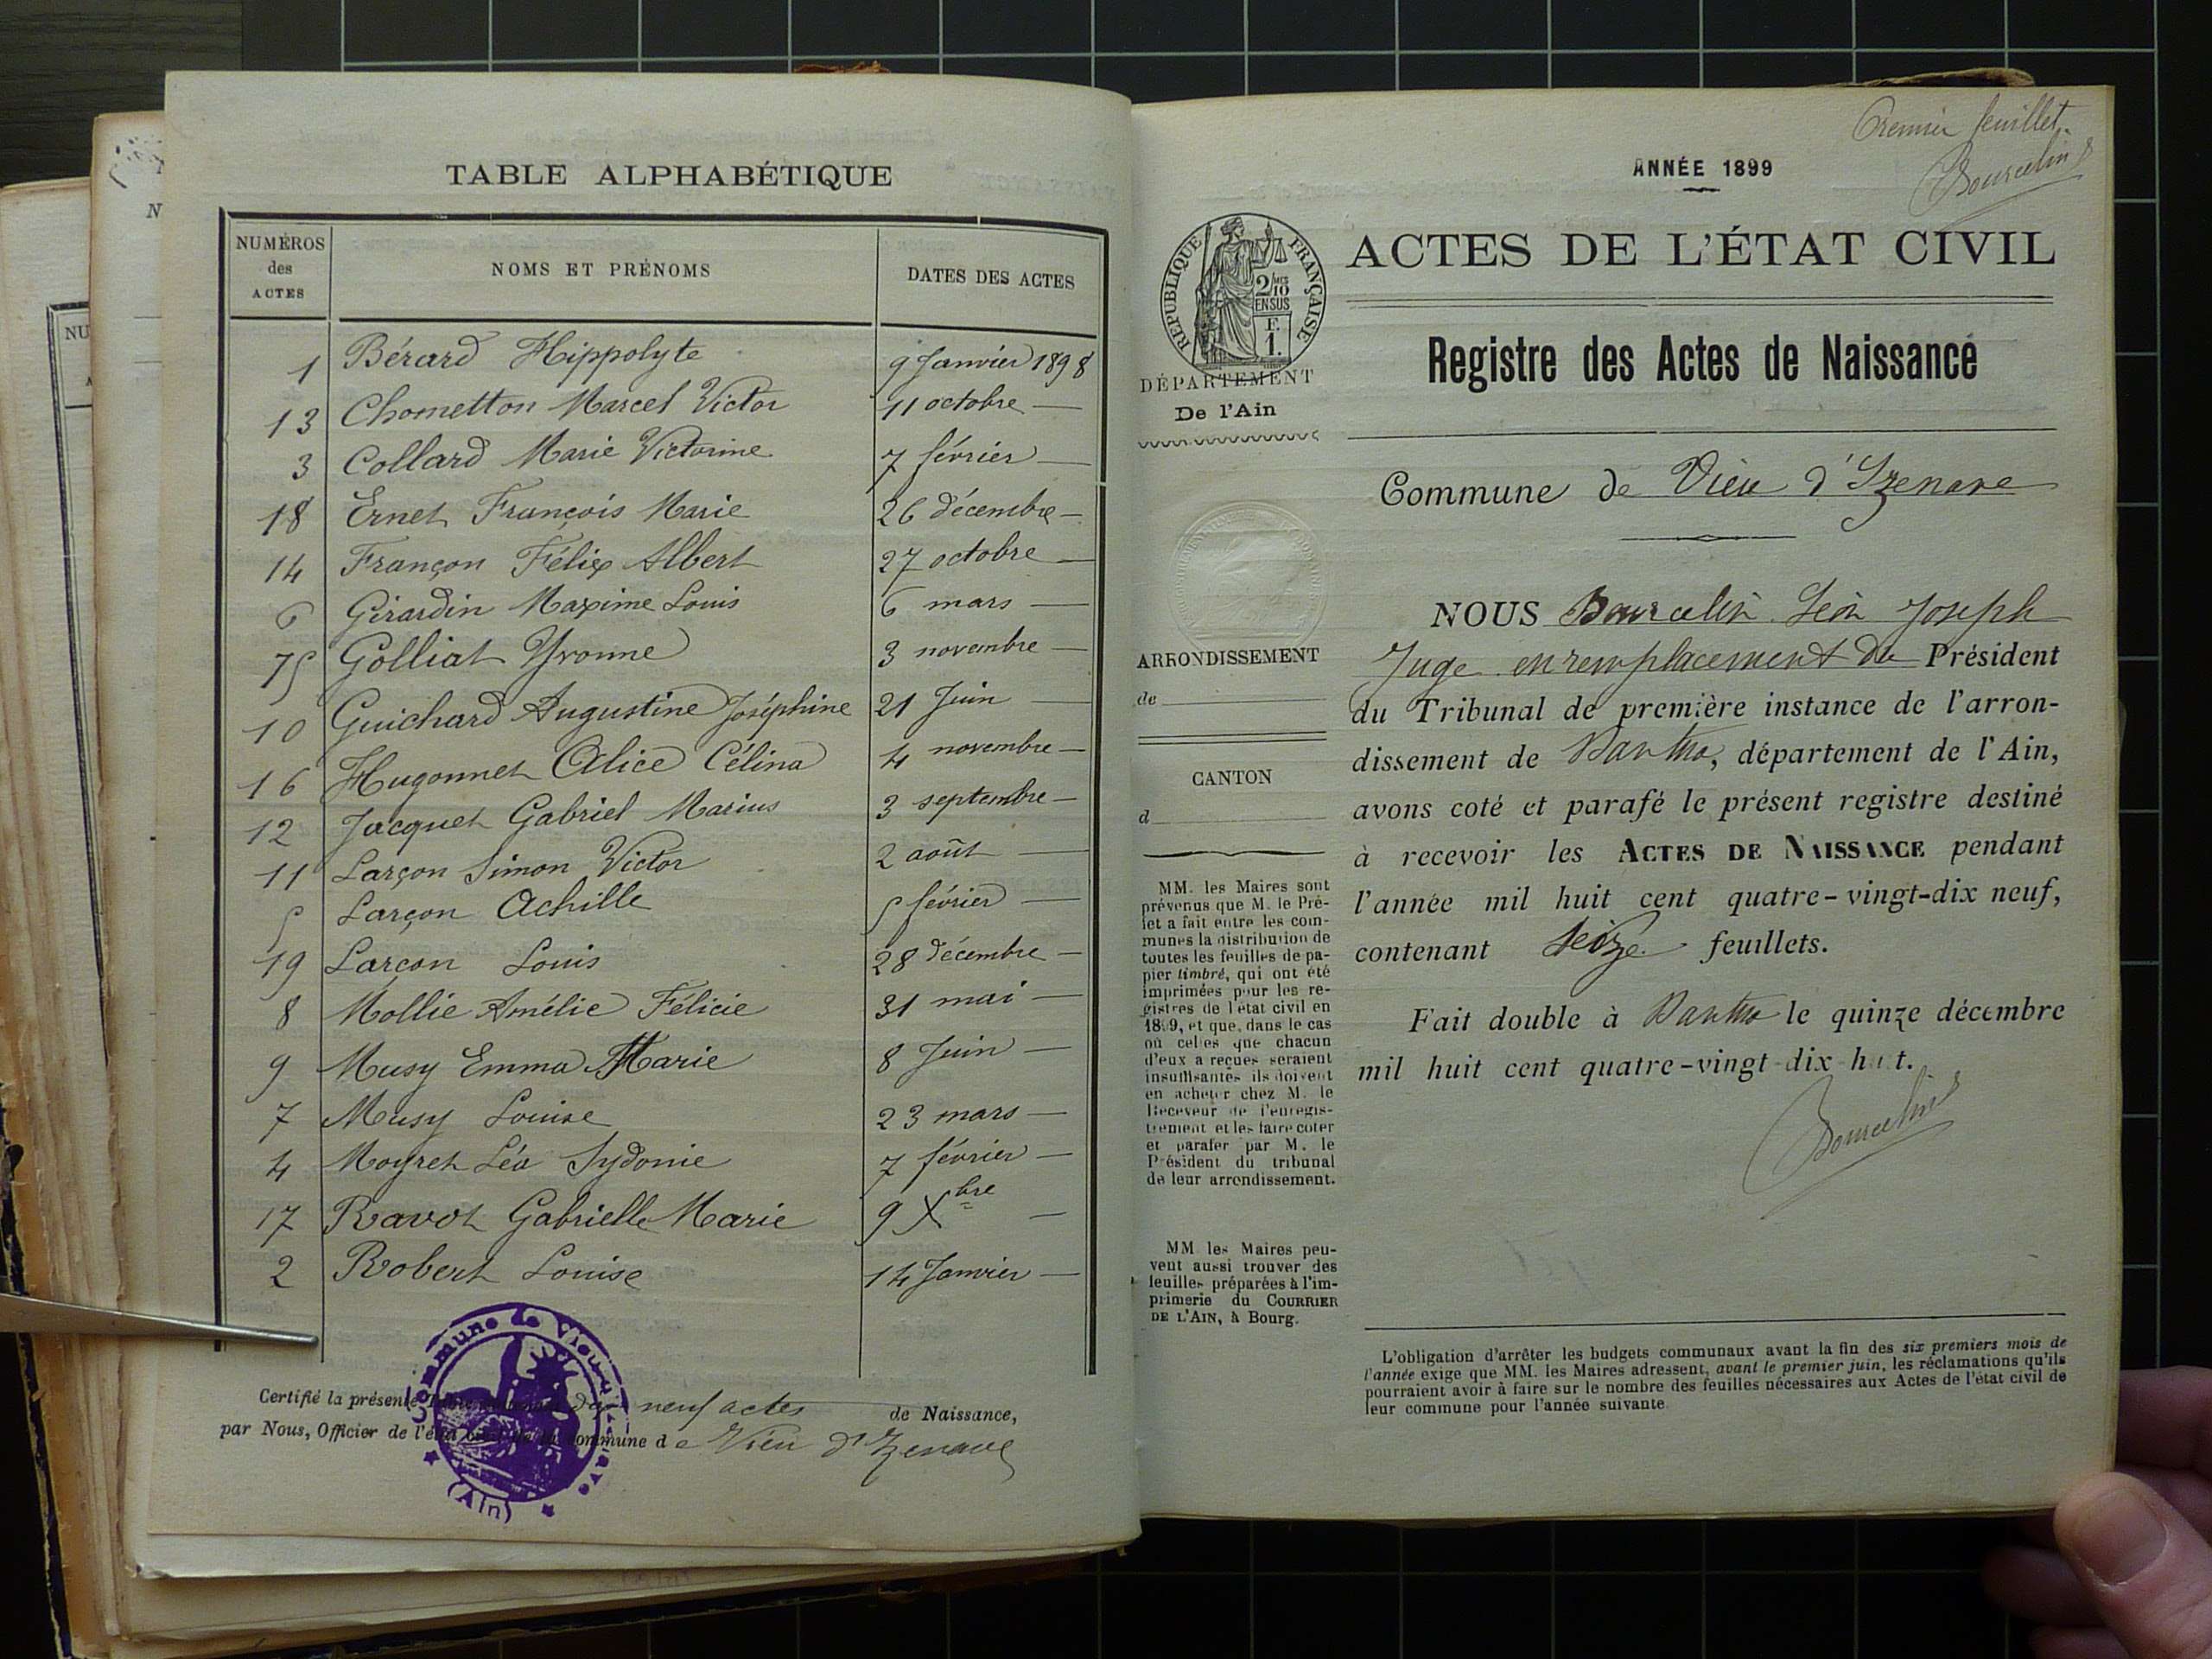 TABLE ALPHABÉTIQUE
NUMÉROS des ACTES NOMS ET PRÉNOMS DATES DES ACTES
1 Bérard Hippolyte 9 Janvier 1898
13 Chometton Marcel Victor 11 octobre —
3 Collard Marie Victorine 7 février —
18 Ernet François Marie 26 décembre —
14 Françon Félix Albert 27 octobre —
6 Girardin Maxime Louis 6 mars —
15 Golliat Yvonne 3 novembre —
10 Guichard Augustine Joséphine 21 Juin —
16 Hugonnet Alice Célina 4 novembre —
12 Jacquet Gabriel Marius 3 septembre —
11 Larçon Simon Victor 2 août —
5 Larçon Achille 5 février —
19 Larçon Louis 28 décembre —
8 Mollie Amélie Félicie 31 mai —
9 Musy Emma Marie 8 Juin —
7 Musy Louise 23 mars —
4 Moyret Léa Sydonie 7 février —
17 Ravot Gabrielle Marie 9 Xbre —
2 Robert Louise 14 Janvier —
Certifié la présente neuf actes de Naissance,
par Nous, Officier de l'état commune de Vieu d'Izenave
Commune de Vieu d'Izenave
(Ain)
Premier feuillet.
Bourcelin
ANNÉE 1899
ACTES DE L'ÉTAT CIVIL
RÉPUBLIQUE FRANÇAISE
2/10 MES
EN SUS
F.
1.
DÉPARTEMENT
De l'Ain
Registre des Actes de Naissance
Commune de Vieu d'Izenave
NOUS Bourcelin Léon Joseph
Juge en remplacement du Président
du Tribunal de première instance de l'arron-
dissement de Nantua, département de l'Ain,
avons coté et parafé le présent registre destiné
à recevoir les ACTES DE NAISSANCE pendant
l'année mil huit cent quatre-vingt-dix neuf,
contenant seize feuillets.
Fait double à Nantua le quinze décembre
mil huit cent quatre-vingt-dix-huit.
Bourcelin
ARRONDISSEMENT
de
CANTON
d
MM. les Maires sont
prévenus que M. le Pré-
fet a fait entre les com-
munes la distribution de
toutes les feuilles de pa-
pier timbré, qui ont été
imprimées pour les re-
gistres de l'état civil en
1899, et que, dans le cas
où celles que chacun
d'eux a reçues seraient
insuffisantes ils doivent
en acheter chez M. le
Receveur de l'enregis-
trement et les faire coter
et parafer par M. le
Président du tribunal
de leur arrondissement.
MM les Maires peu-
vent aussi trouver des
feuilles préparées à l'im-
primerie du COURRIER
DE L'AIN, à Bourg.
L'obligation d'arrêter les budgets communaux avant la fin des six premiers mois de
l'année exige que MM. les Maires adressent, avant le premier juin, les réclamations qu'ils
pourraient avoir à faire sur le nombre des feuilles nécessaires aux Actes de l'état civil de
leur commune pour l'année suivante